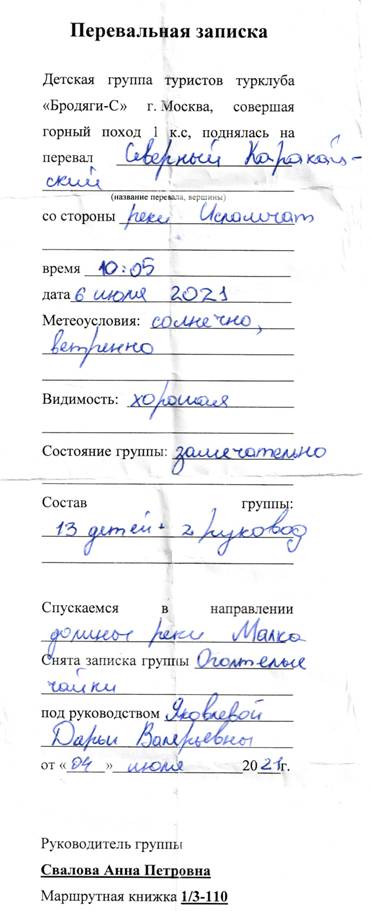 Перевальная записка
Детская группа туристов турклуба
«Бродяги-С» г. Москва, совершая
горный поход 1 к.с, поднялась на
перевал Северный Каракай-
ский
(название перевала, вершины)
со стороны реки Исламчат
время 10:05
дата 6 июля 2021
Метеоусловия: солнечно,
ветренно
Видимость: хорошая
Состояние группы: замечательно
Состав группы:
13 детей + 2 руковод
Спускаемся в направлении
долины реки Малка
Снята записка группы Оголтелые
чайки
под руководством Яковлевой
Дарьи Валерьевны
от «04» июля 2021г.
Руководитель группы
Свалова Анна Петровна
Маршрутная книжка 1/3-110